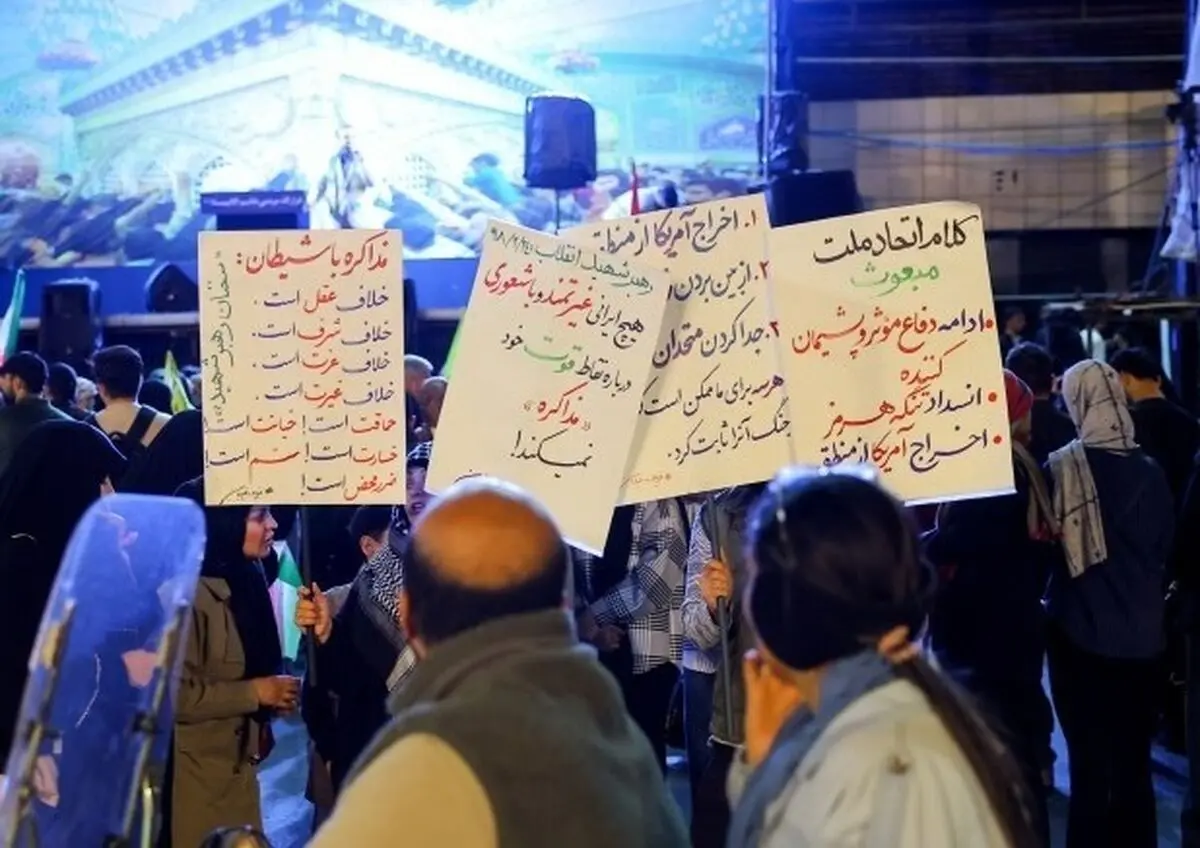 مذاکره با شیطان:
خلاف عقل است.
خلاف شرف است.
خلاف عزت است.
خلاف غیرت است.
حماقت است! خیانت است!
خسارت است! سم است!
ضرر محض است!
«سخنان رهبر شهید»
۹۸/۲/۲۴
رهبر شهید انقلاب
هیچ ایرانی غیرتمند و باشعوری
درباره نقاط قوت خود
«مذاکره»
نمیکند!
۱. اخراج آمریکا از منطقه
۲. از بین بردن
۳. جدا کردن متحدان
هر سه برای ما ممکن است
جنگ آنرا ثابت کرد.
کلام اتحاد ملت
مبعوث
• ادامه دفاع مؤثر و پشیمان
کننده
• انسداد تنگه هرمز
• اخراج آمریکا از منطقه